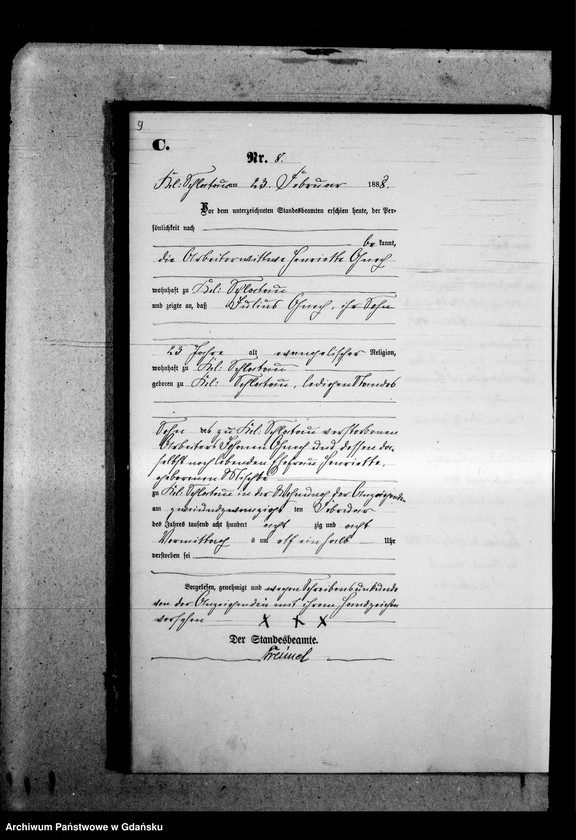 9
C.
Nr. 8.
Kl: Schlatau am 23. Februar 1888.
Vor dem unterzeichneten Standesbeamten erschien heute, der Per-
sönlichkeit nach
be kannt,
die Arbeiterwittwe Henriette
wohnhaft zu Kl: Schlatau
und zeigte an, daß Julius, ihr Sohn
23 Jahre alt evangelischer Religion,
wohnhaft zu Kl: Schlatau
geboren zu Kl: Schlatau, ledigen Standes
Sohn des zu Kl: Schlatau verstorbenen
Arbeiters Johann und dessen da-
selbst noch lebenden Ehefrau Henriette,
geborenen
zu Kl: Schlatau in der Wohnung der Anzeigenden
am zweiundzwanzigsten ten Februar
des Jahres tausend acht hundert acht zig und acht
Vormittags um elf einhalb Uhr
verstorben sei
Vorgelesen, genehmigt und wegen Schreibensunkunde
von der Anzeigenden mit ihrem Handzeichen
versehen X X X
Der Standesbeamte.
Archiwum Państwowe w Gdańsku